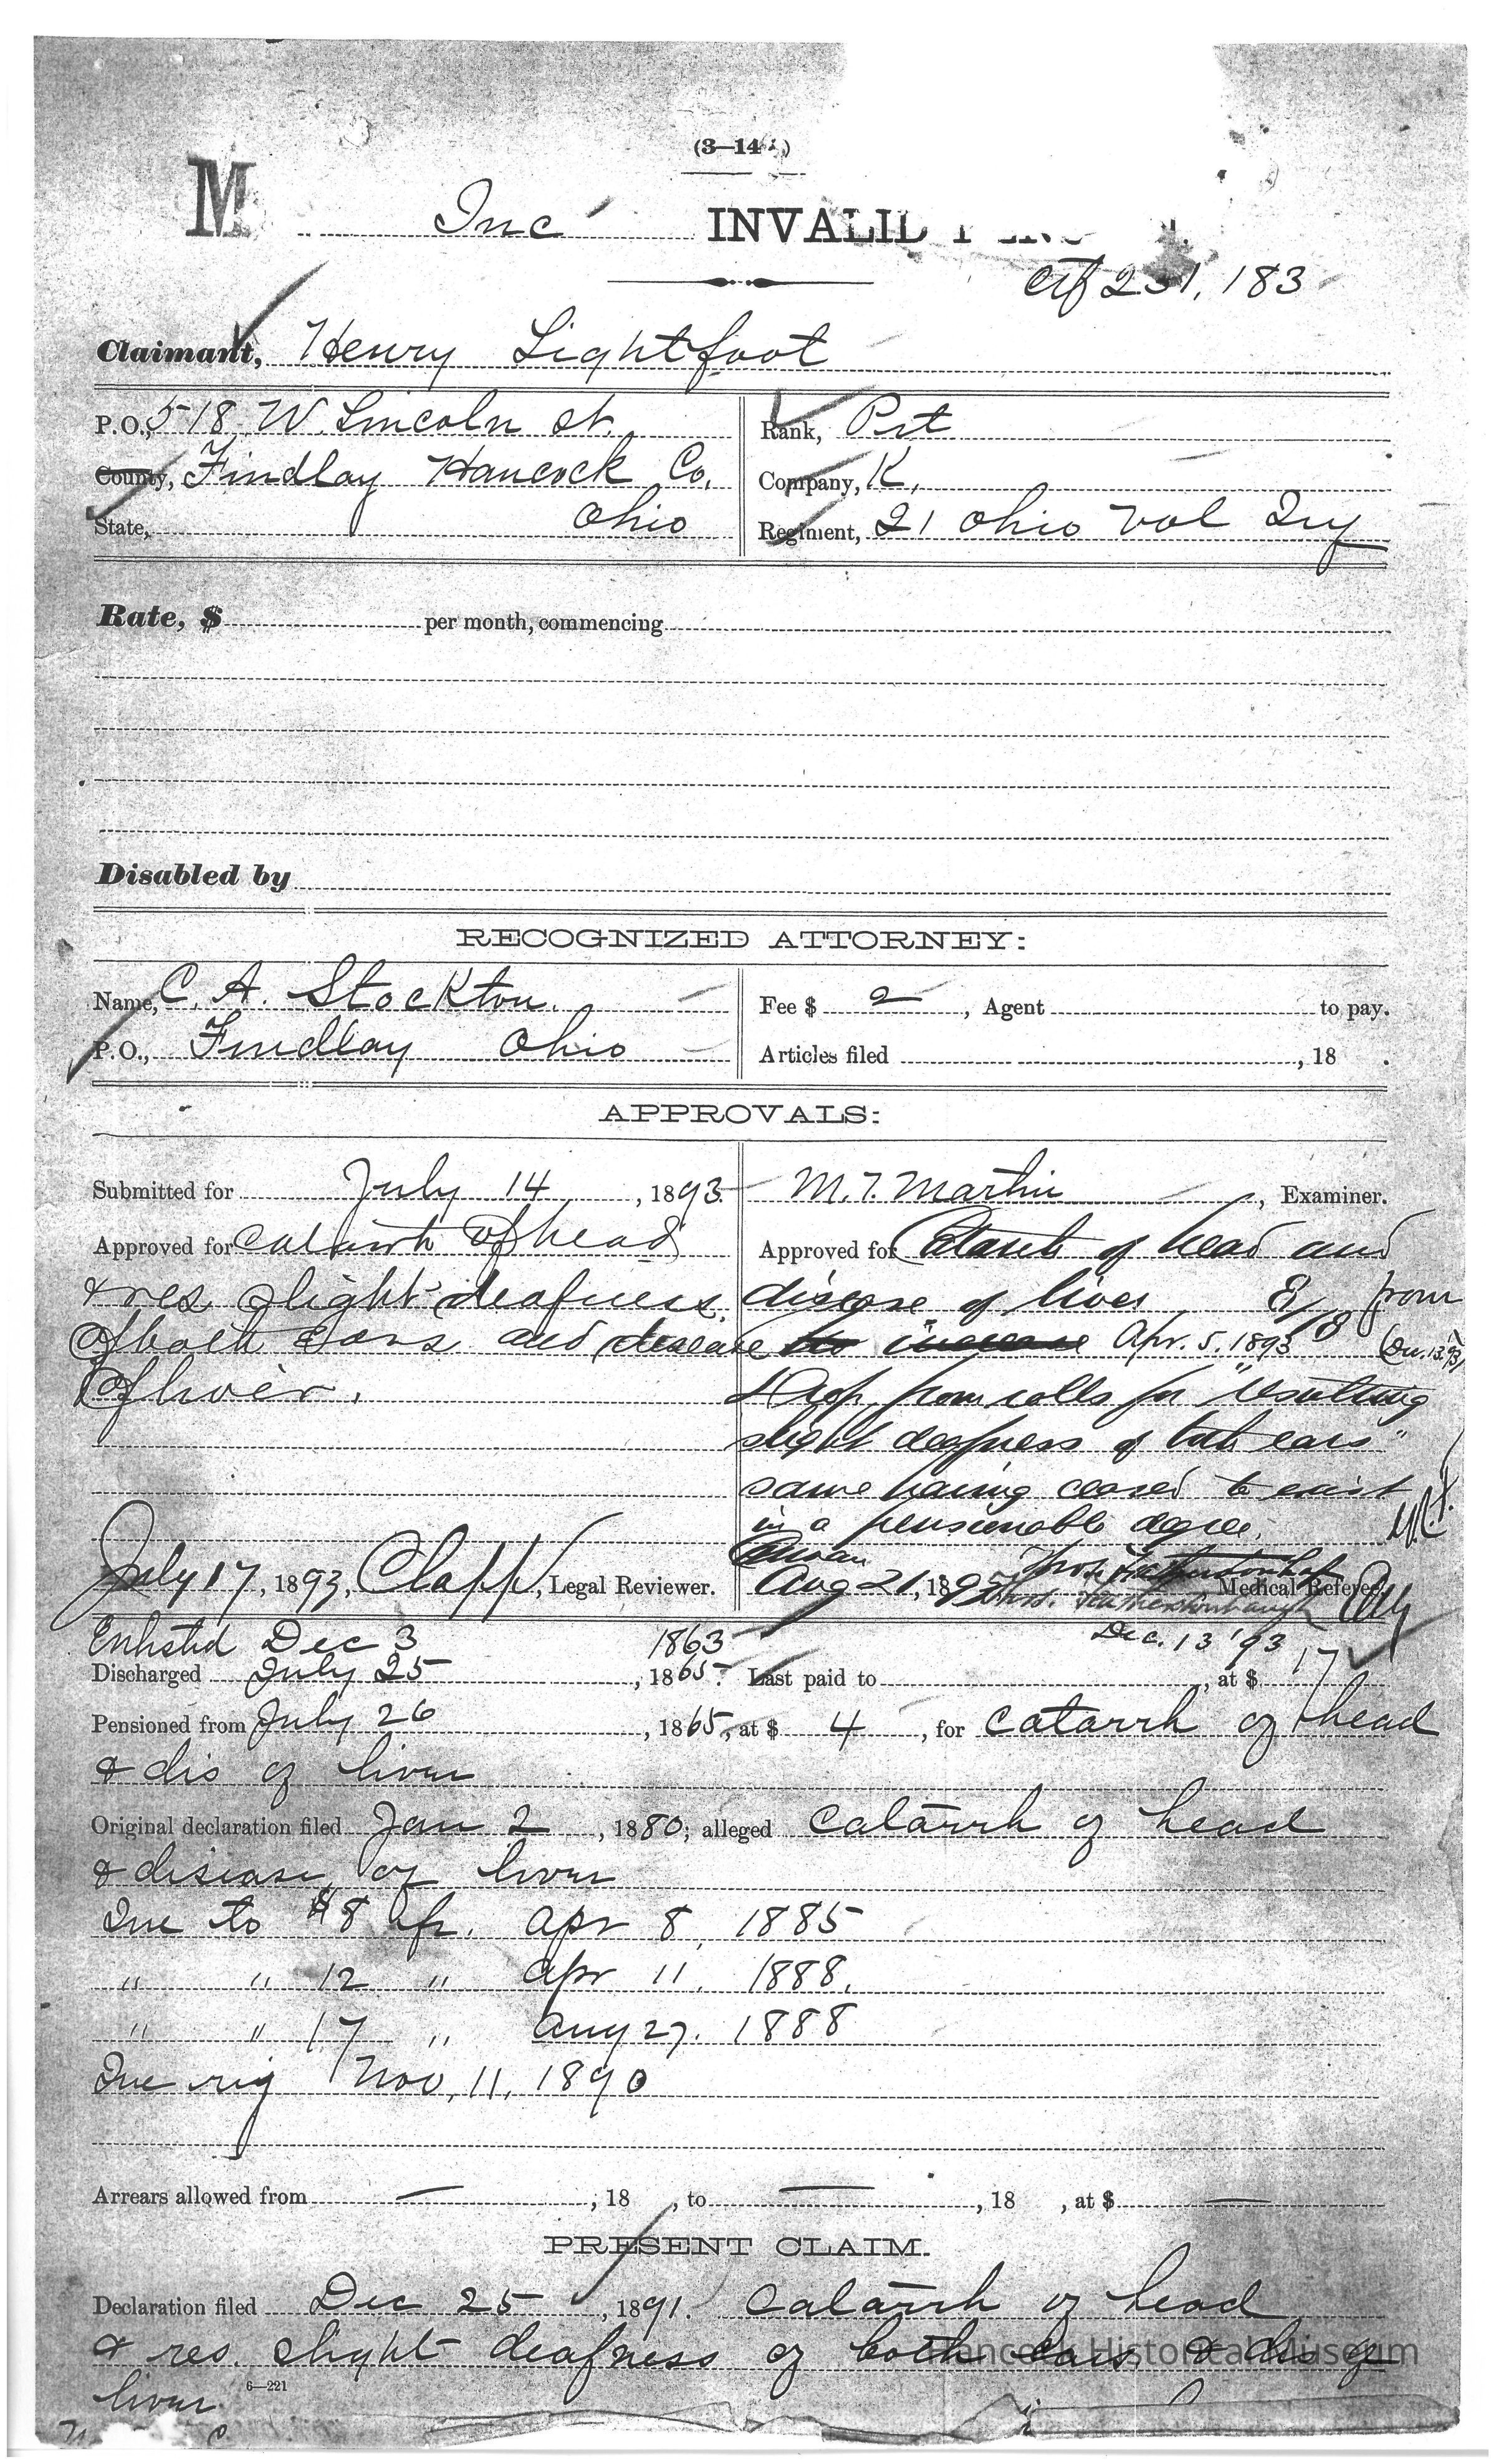 (3—14
M
Inc INVALID
Ctf 251,183
Claimant, Henry Lightfoot
P.O., 518 W. Lincoln St. Rank, Pvt
County, Findlay Hancock Co. Company, K,
State, Ohio Regiment, 21 Ohio Vol Inf
Rate, $ per month, commencing
Disabled by
RECOGNIZED ATTORNEY:
Name, C. A. Stockton. Fee $ 2, Agent to pay.
P.O., Findlay Ohio Articles filed , 18 .
APPROVALS:
Submitted for July 14, 1893 M. T. Martin, Examiner.
Approved for Catarrh of head Approved for Catarrh of head and
& res slight deafness disease of liver 8/18 from
of both ears and disease no increase Apr. 5. 1893 (Dec. 13.93)
of liver. Drop from rolls for "resulting
slight deafness of both ears"
same having ceased to exist
in a pensionable degree.
July 17, 1893, Clapp, Legal Reviewer. Aug 21, 189 Medical Referee.
Dec. 13 '93
Enlisted Dec 3 1863
Discharged July 25, 1865. Last paid to , at $ 17
Pensioned from July 26, 1865, at $ 4, for Catarrh of head
& dis of liver
Original declaration filed Jan 2, 1880; alleged Catarrh of head
& disease of liver
Inc to $8 fr. Apr 8, 1885
" " 12 " Apr 11, 1888.
" " 17 " Aug 27. 1888
Inc rej Nov. 11, 1890
Arrears allowed from — , 18 , to — , 18 , at $ —
PRESENT CLAIM.
Declaration filed Dec 25, 1891. Catarrh of head
& res. slight deafness of both ears & dis of
liver.
6—221
Hancock Historical Museum